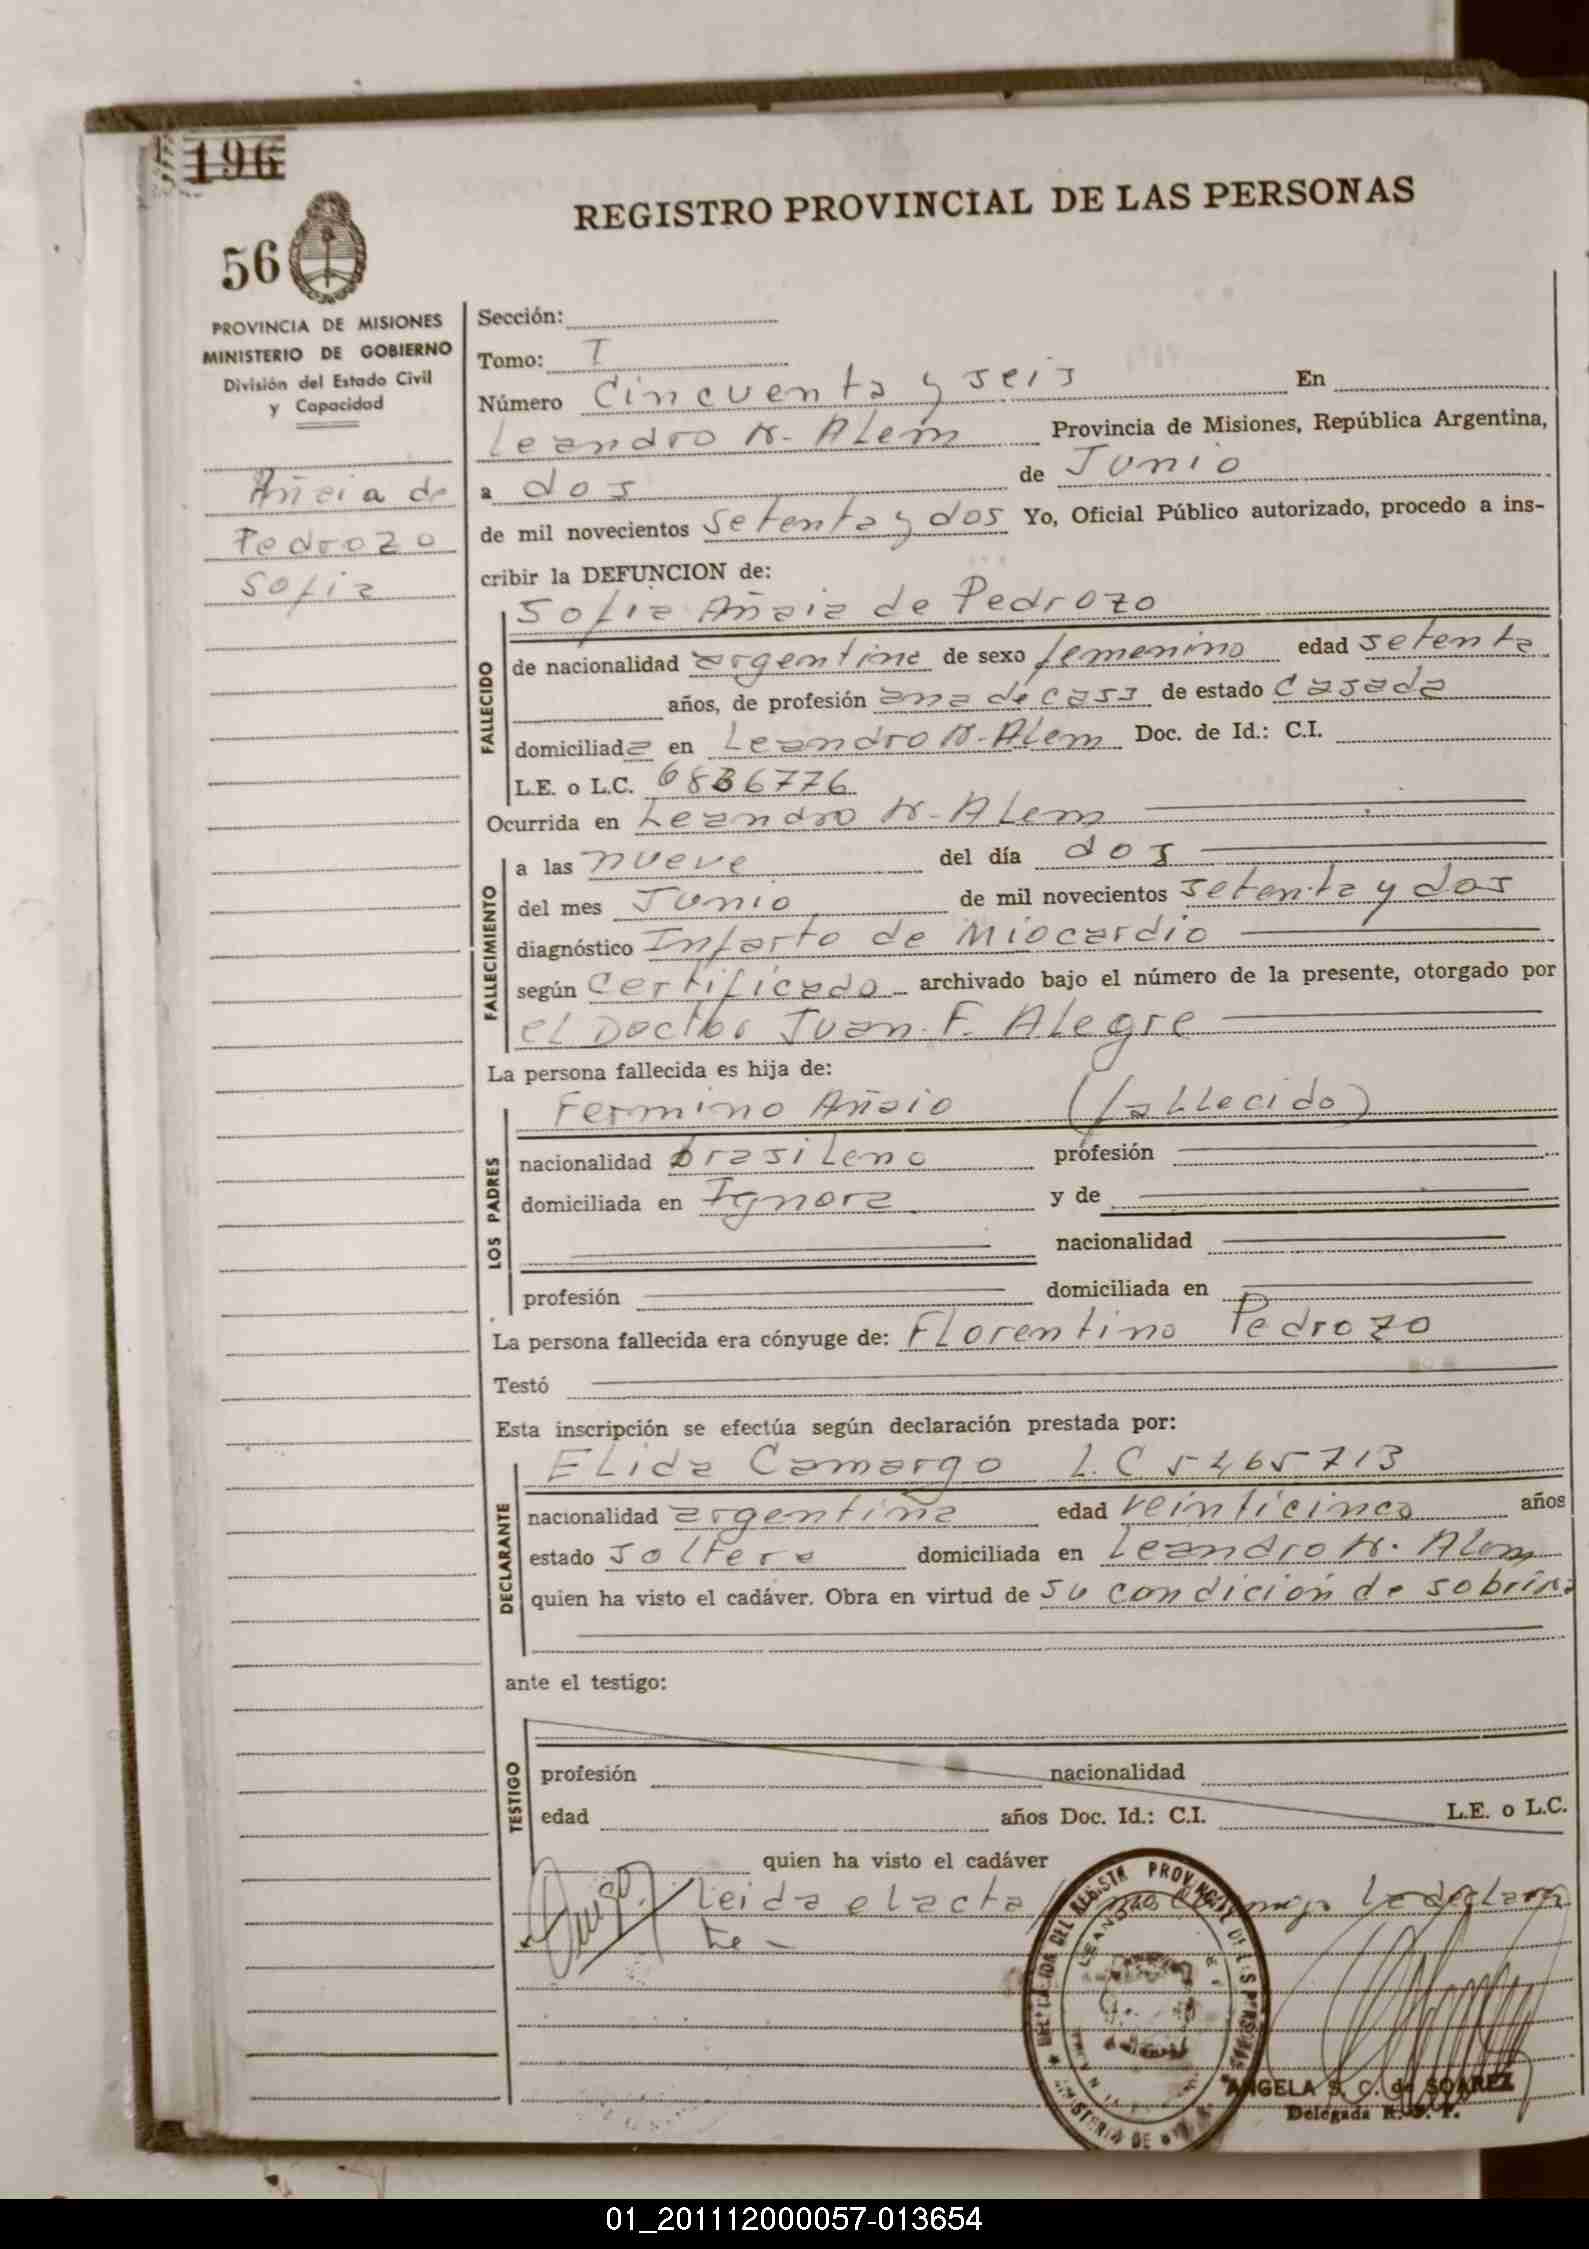 196
REGISTRO PROVINCIAL DE LAS PERSONAS
56
PROVINCIA DE MISIONES
MINISTERIO DE GOBIERNO
División del Estado Civil
y Capacidad
Añaia de
Pedrozo
Sofia
Sección:
Tomo: I
Número Cincuenta y seis En
Leandro N. Alem Provincia de Misiones, República Argentina,
a dos de Junio
de mil novecientos setenta y dos Yo, Oficial Público autorizado, procedo a ins-
cribir la DEFUNCION de:
Sofia Añaia de Pedrozo
FALLECIDO
de nacionalidad argentina de sexo femenino edad setenta
años, de profesión ama de casa de estado Casada
domiciliada en Leandro N. Alem Doc. de Id.: C.I.
L.E. o L.C. 6836776
Ocurrida en Leandro N. Alem
FALLECIMIENTO
a las nueve del día dos
del mes Junio de mil novecientos setenta y dos
diagnóstico Infarto de Miocardio
según Certificado archivado bajo el número de la presente, otorgado por
el Doctor Juan F. Alegre
La persona fallecida es hija de:
LOS PADRES
Fermino Añaio (fallecido)
nacionalidad brasileno profesión
domiciliada en Ignora y de
nacionalidad
profesión domiciliada en
La persona fallecida era cónyuge de: Florentino Pedrozo
Testó
Esta inscripción se efectúa según declaración prestada por:
DECLARANTE
Elida Camargo L.C 5465713
nacionalidad argentina edad veinticinco años
estado soltera domiciliada en Leandro N. Alem
quien ha visto el cadáver. Obra en virtud de su condición de sobrina
ante el testigo:
TESTIGO
profesión nacionalidad
edad años Doc. Id.: C.I. L.E. o L.C.
quien ha visto el cadáver
Leida el acta la declaran
te -
ANGELA S. C. de SOAREZ
Delegada R. P. P.
01_201112000057-013654